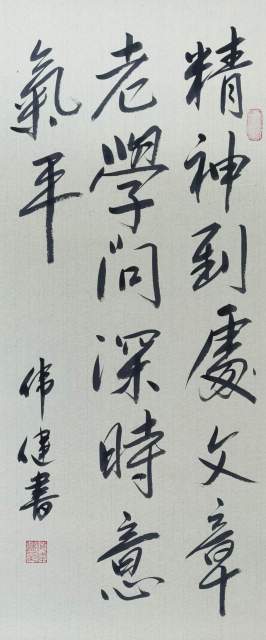 精神到處文章
老學问深時意
氣平
伟健書